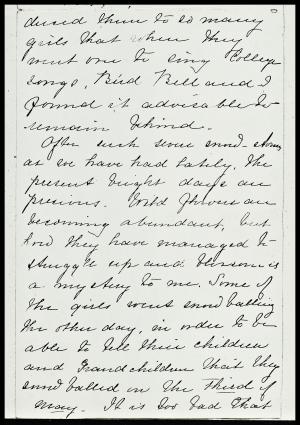 duced them to so many
girls that when they
went one to sing College
songs, Bird Bell and I
found it advisable to
remain behind.
After such severe snow-storms
as we have had lately, the
present bright days are
precious. Wild flowers are
becoming abundant, but
how they have managed to
struggle up and blossom is
a mystery to me. Some of
the girls went snow balling
the other day, in order to be
able to tell their children
and Grandchildren that they
snow balled on the Third of
May. It is too bad that